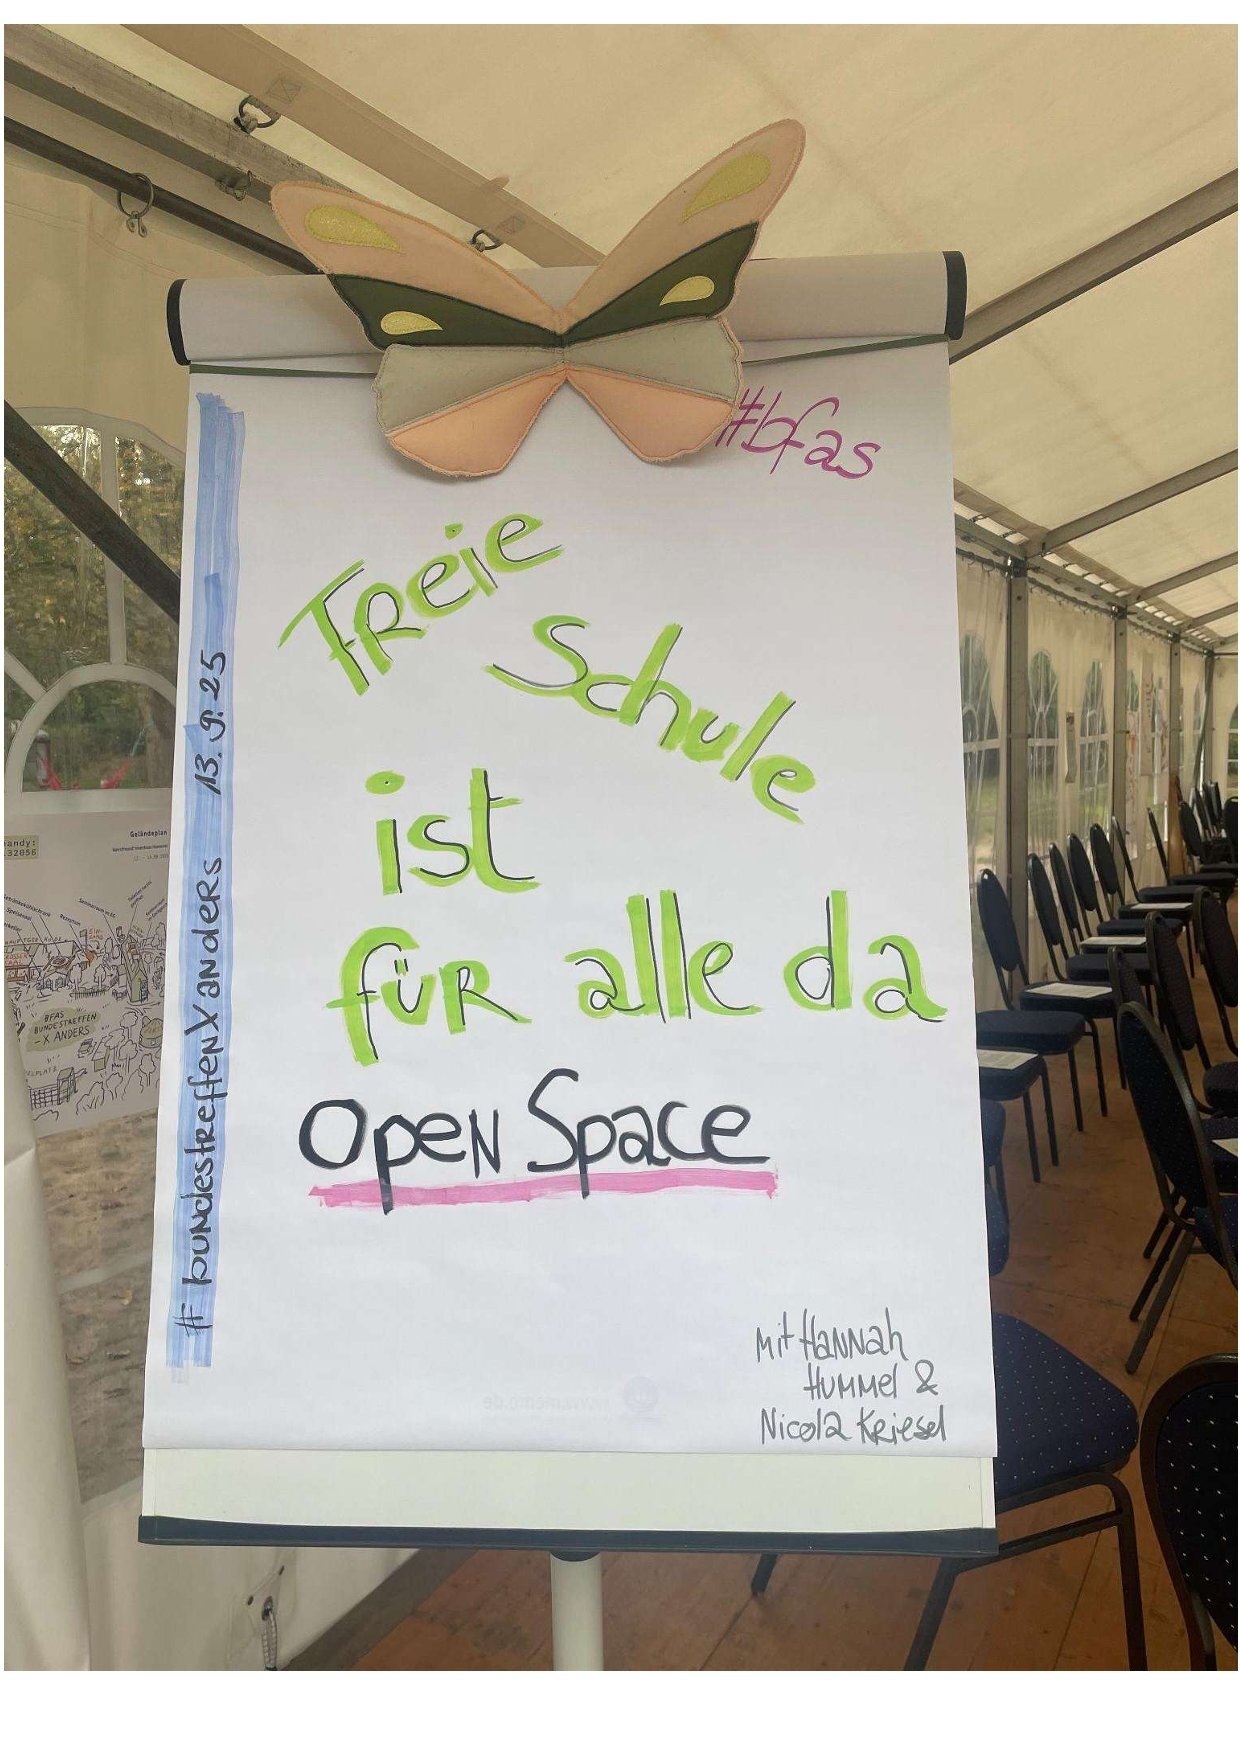 #bfas
Freie
Schule
ist
für alle da
Open Space
mit Hannah
Hummel &
Nicola Kriesel
#bundestreffenXanders 13.9.25
andy:
32856
Geländeplan
BFAS
BUNDESTREFFEN
-X ANDERS